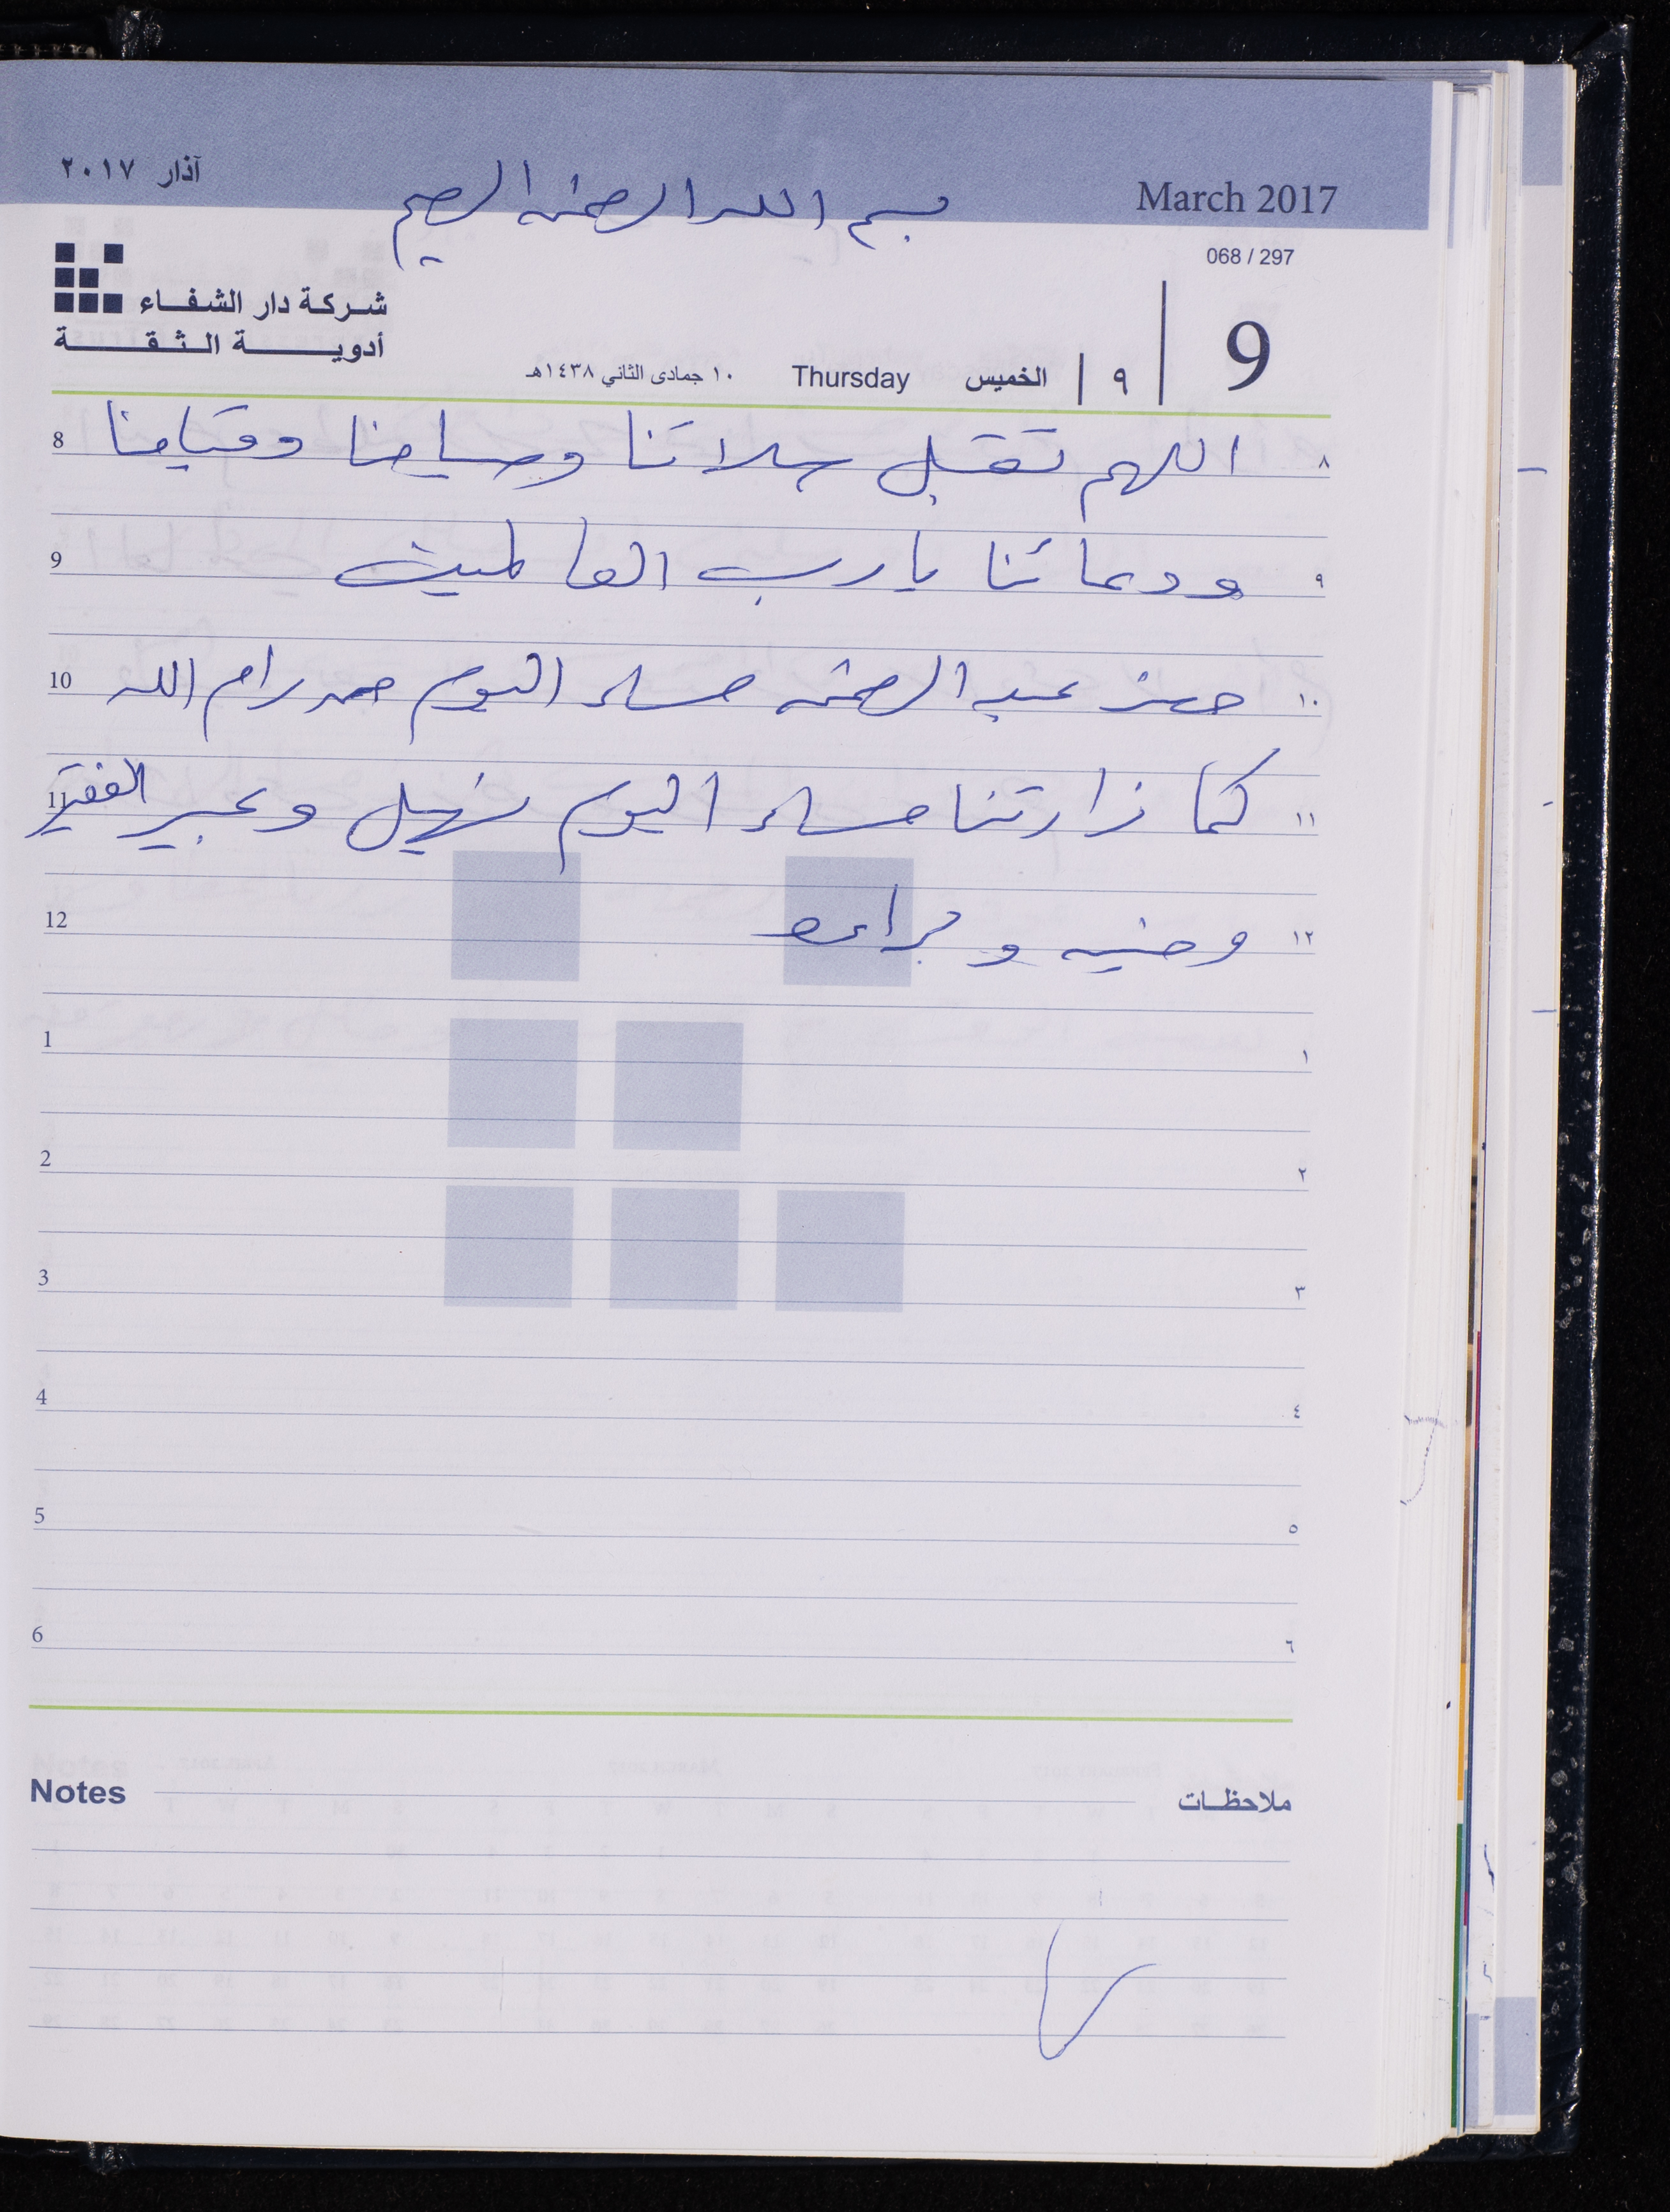 آذار ٢٠١٧
March 2017
بسم الله الرحمن الرحيم
068 / 297
شركة دار الشفاء
أدوية الثقة
9
٩ الخميس Thursday ١٠ جمادى الثاني ١٤٣٨هـ
8 اللهم تقبل صلاتنا وصيامنا وقيامنا ٨
9 ودعائنا يا رب العالمين ٩
10 حضر عبد الرحمن مساء اليوم من رام الله ١٠
11 كما زارتنا مساء اليوم نهيل وعبير الفقير ١١
12 و وبراءه ١٢
1 ١
2 ٢
3 ٣
4 ٤
5 ٥
6 ٦
Notes ملاحظات